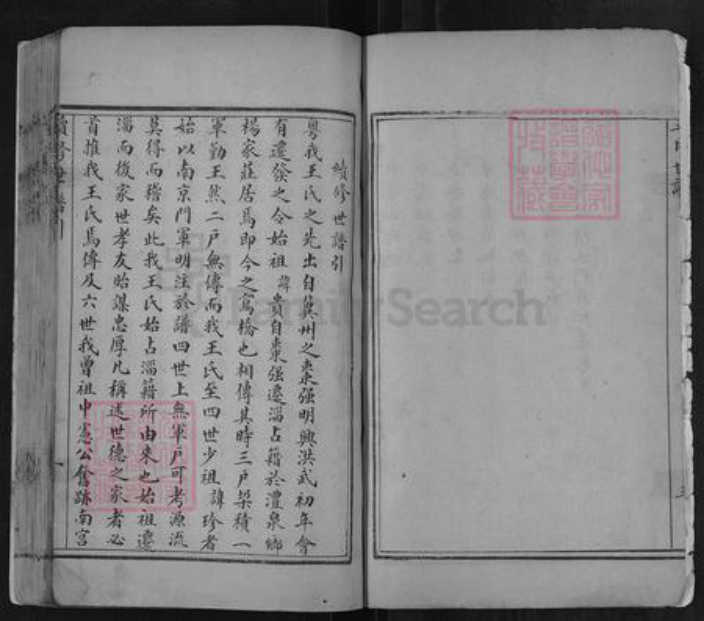 續修世譜引
粵我王氏之先出自冀州之棗强明興洪武初年會
有遷發之令始祖諱貴自棗强遷淄占籍於澧泉鄉
楊家莊居焉即今之窎橋也相傳其時三戶垜積一
軍勤王然二戶無傳而我王氏至四世少祖諱珍者
始以南京門軍明注於譜四世上無軍戶可考源流
莫得而稽矣此我王氏始占淄籍所由來也始祖遷
淄而後家世孝友貽謀忠厚凡稱述世德之家者必
首推我王氏焉傳及六世我曾祖中憲公奮跡南宮
續修世譜引
一
FamilySearch